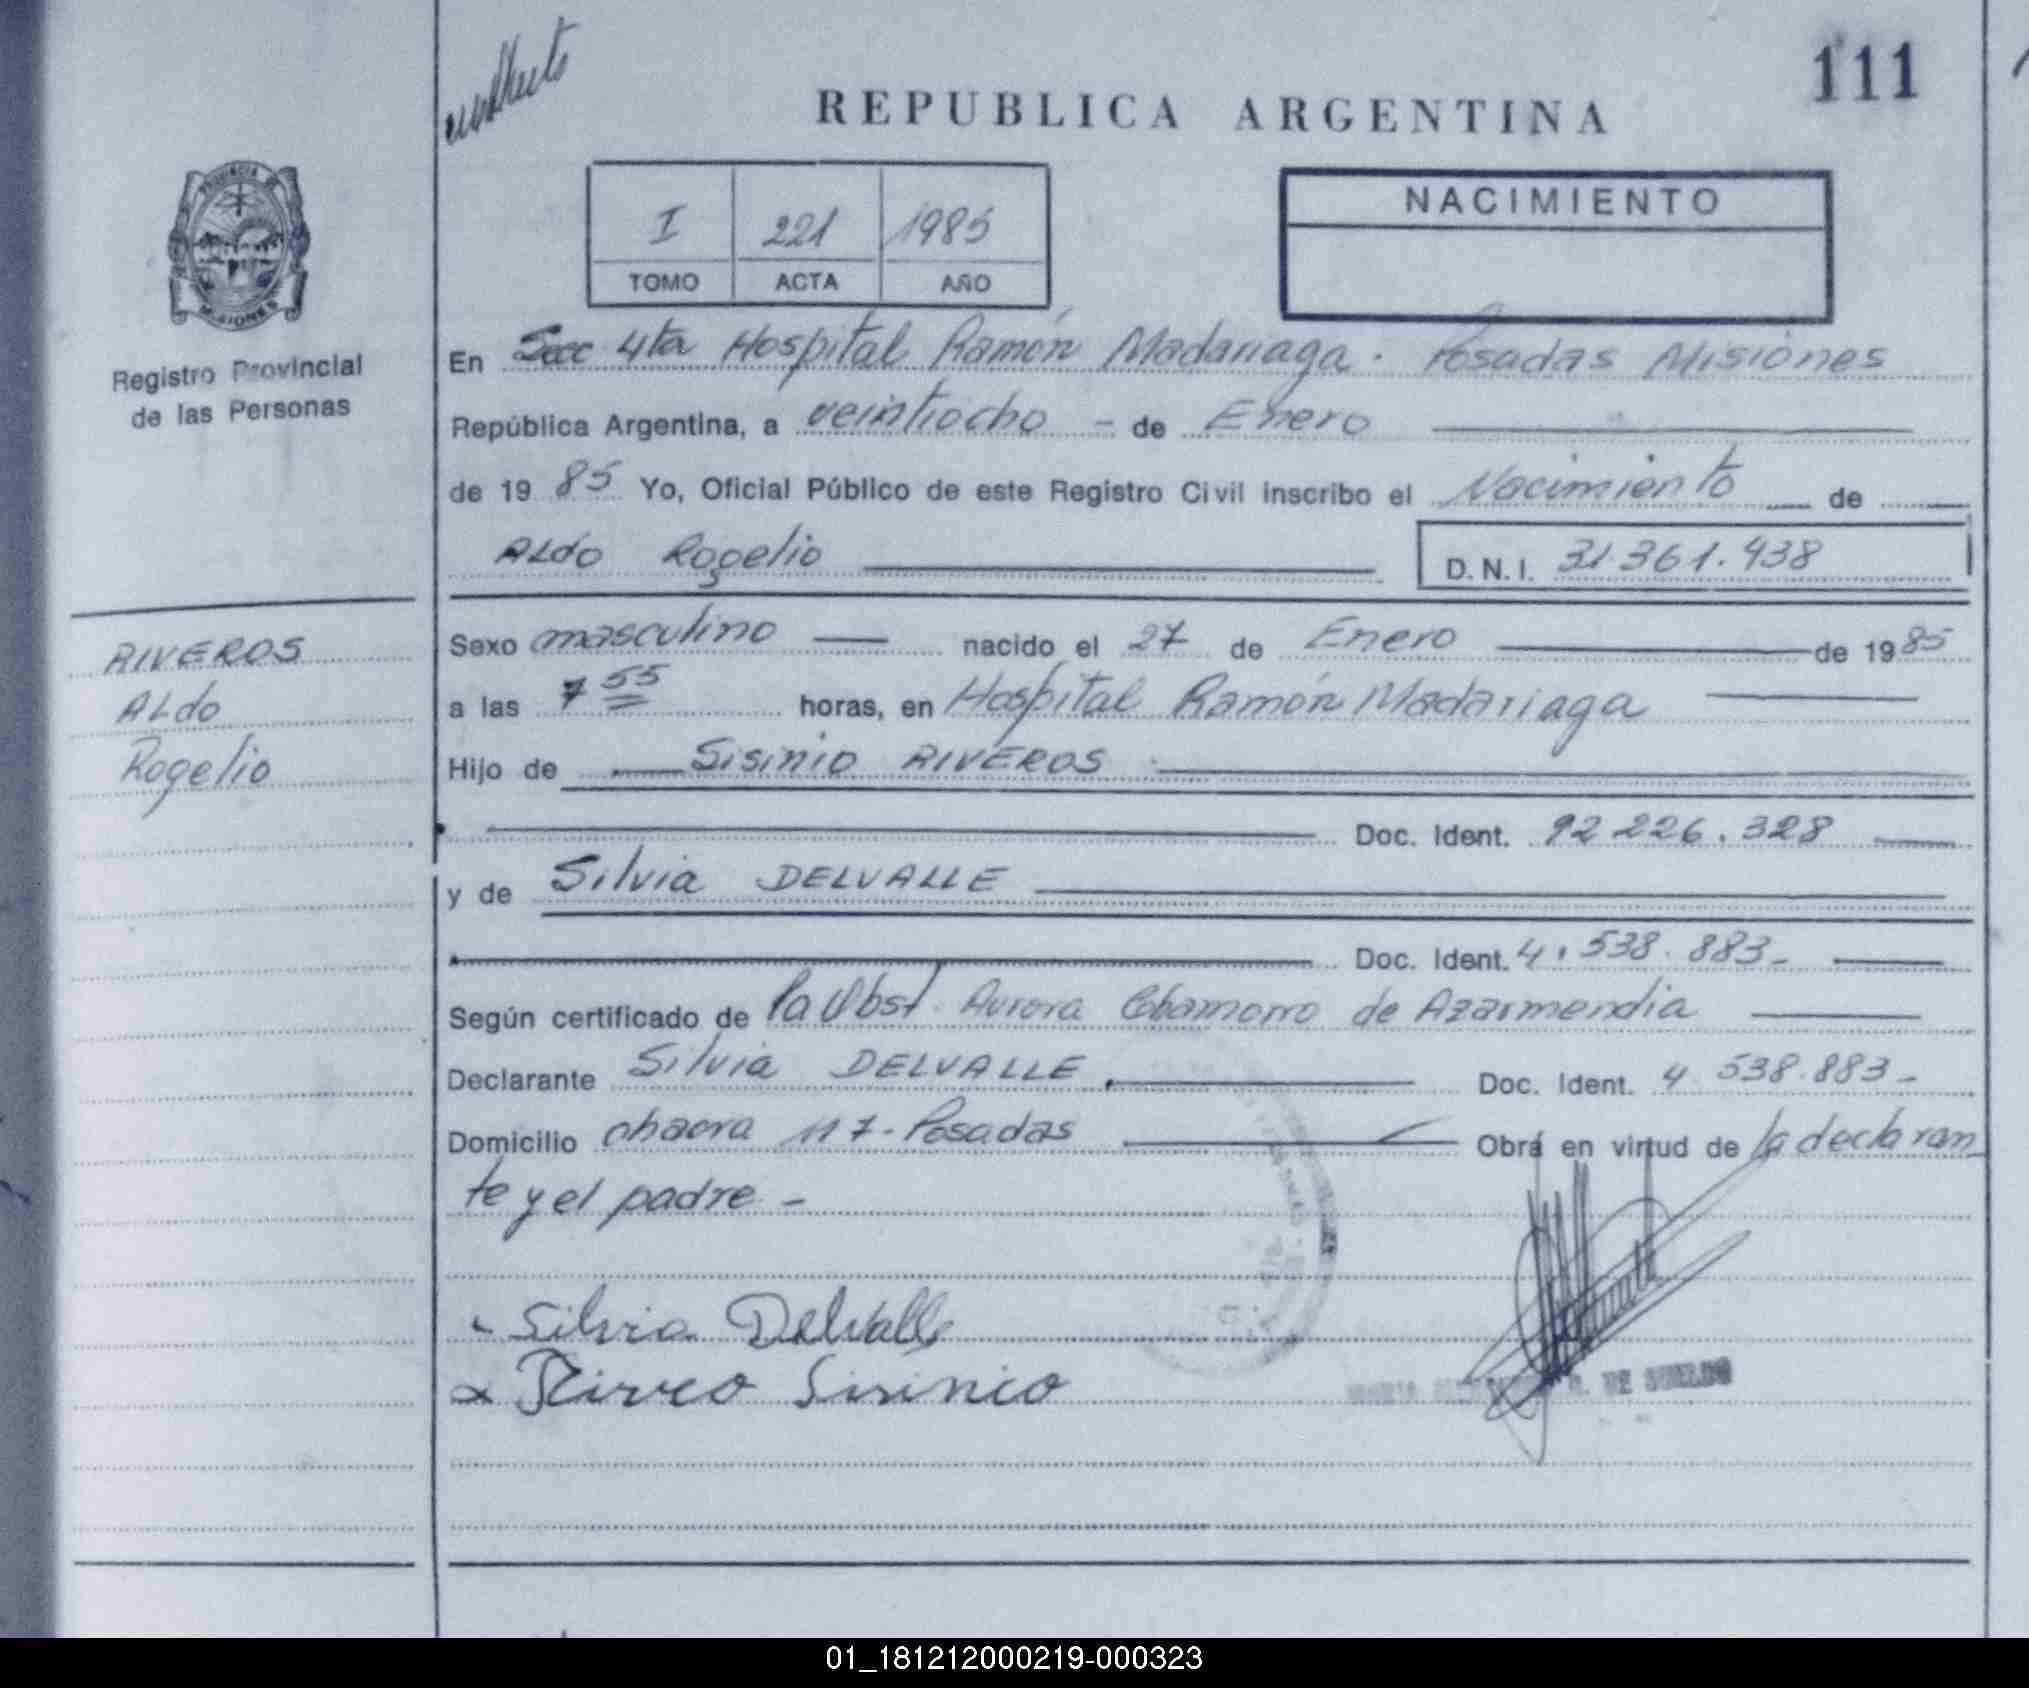 111
REPUBLICA ARGENTINA
I 221 1985
TOMO ACTA AÑO
NACIMIENTO
PROVINCIA DE
MISIONES
Registro Provincial
de las Personas
En Secc 4ta Hospital Ramón Madariaga. Posadas Misiones
República Argentina, a veintiocho - de Enero
de 19 85 Yo, Oficial Público de este Registro Civil inscribo el Nacimiento de
ALdo Rogelio D.N.I. 31.361.438
RIVEROS
ALdo
Rogelio
Sexo masculino nacido el 27 de Enero de 19 85
a las 7 55 horas, en Hospital Ramón Madariaga
Hijo de Sisinio RIVEROS
Doc. Ident. 92 226.328
y de Silvia DELVALLE
Doc. Ident. 4.538.883-
Según certificado de la Obst. Aurora Chamorro de Azarmendia
Declarante Silvia DELVALLE Doc. Ident. 4.538.883-
Domicilio chacra 117-Posadas Obrá en virtud de la declaran
te y el padre -
Silvia Delvalle
Sisinio
DE SUELDO
01_181212000219-000323